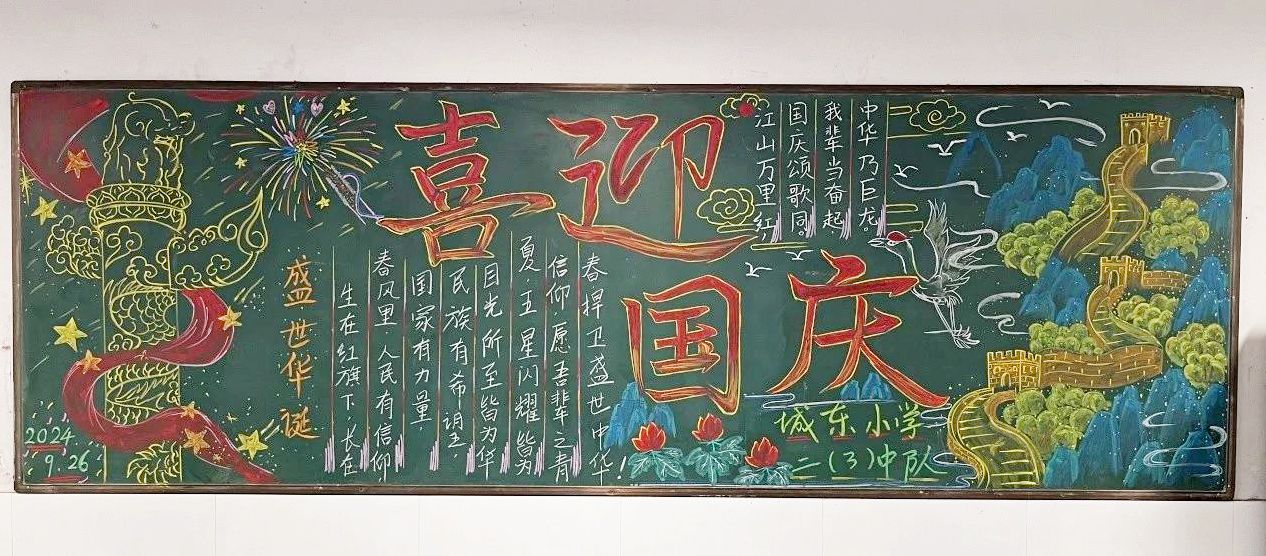 喜迎
国庆
盛世华诞
生在红旗下 长在
春风里 人民有信仰
国家有力量,
民族有希望
目光所至皆为华
夏,五星闪耀皆为
信仰,愿吾辈之青
春捍卫盛世中华!
江山万里红,
国庆颂歌同。
我辈当奋起
中华乃巨龙。
城东小学
二(3)中队
2024
9.26